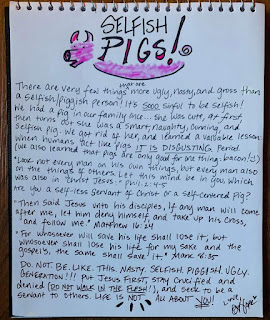 SELFISH
PIGS!
There are very few things that are more ugly, nasty, and gross than
a selfish/piggish person! It's SOOO sinful to be selfish!
We had a pig in our family once... she was cute, at first,
then turns out she was a smart, naughty, cunning, and
selfish pig. We got rid of her, and learned a valuable lesson:
when humans act like pigs IT IS DISGUSTING. Period.
(We also learned that pigs are only good for one thing: bacon! :)
"Look not every man on his own things, but every man also
on the things of others. Let this mind be in you, which
was also in Christ Jesus." Phil. 2:4-5
Are you a self-less servant of Christ or a self-centered pig?
"Then said Jesus unto his disciples, If any man will come
after me, let him deny himself, and take up his cross,
and follow me." Matthew 16:24
"For whosoever will save his life shall lose it; but
whosoever shall lose his life for my sake and the
gospel's, the same shall save it." Mark 8:35
DO. NOT. BE. LIKE. THIS. NASTY. SELFISH. PIGGISH. UGLY.
GENERATION!!! Put JESUS FIRST, STAY CRUCIFIED and
denied (DO NOT WALK IN THE FLESH!), and seek to be a
servant to others. LIFE IS NOT ALL ABOUT YOU!